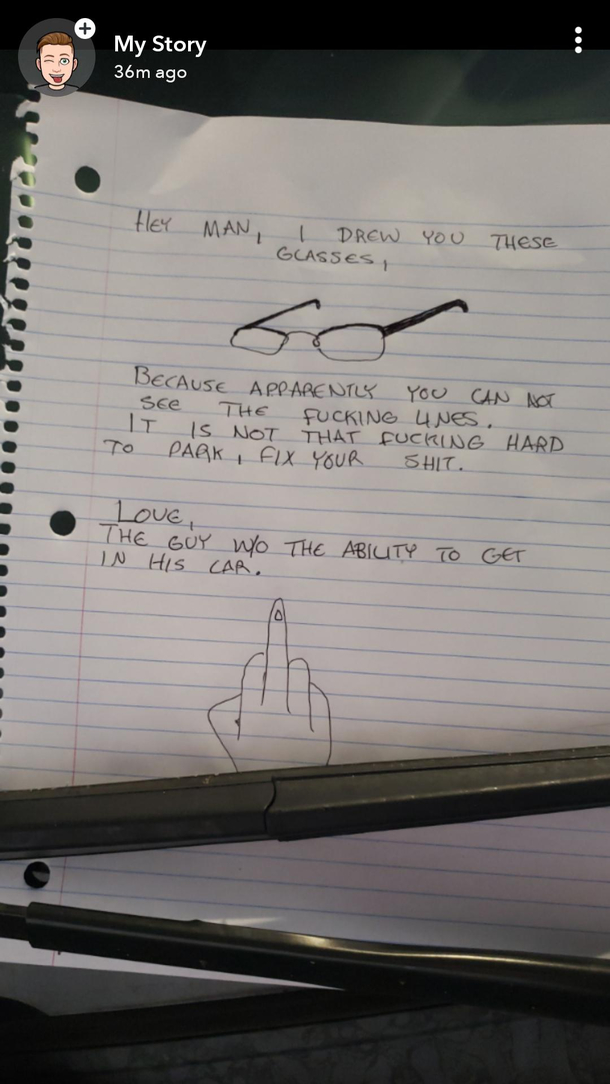 My Story
36m ago
HEY MAN, I DREW YOU THESE
GLASSES,
BECAUSE APPARENTLY YOU CAN NOT
SEE THE FUCKING LINES.
IT IS NOT THAT FUCKING HARD
TO PARK, FIX YOUR SHIT.
LOVE,
THE GUY W/O THE ABILITY TO GET
IN HIS CAR.